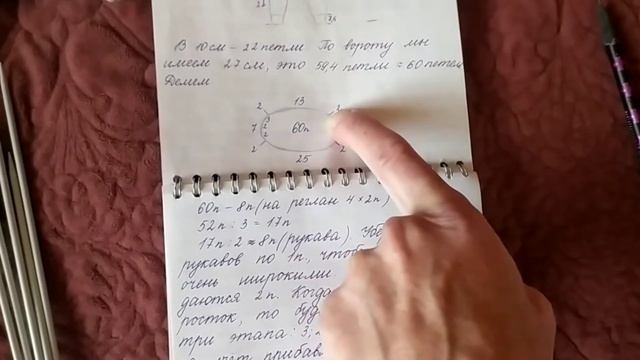 В 10 см – 22 петли По вороту мы
имеем 27 см, это 59,4 петли = 60 петель
Делем
13
2
7
2
2
60п
2
25
2
60п – 8п (на реглан 4 х 2п)
52п : 3 = 17п
17п : 2 ≈ 8п (рукава)
рукавов по 1п, чтоб
очень широкими
даются 2п. Когда
росток, то буд
три этапа: 3;